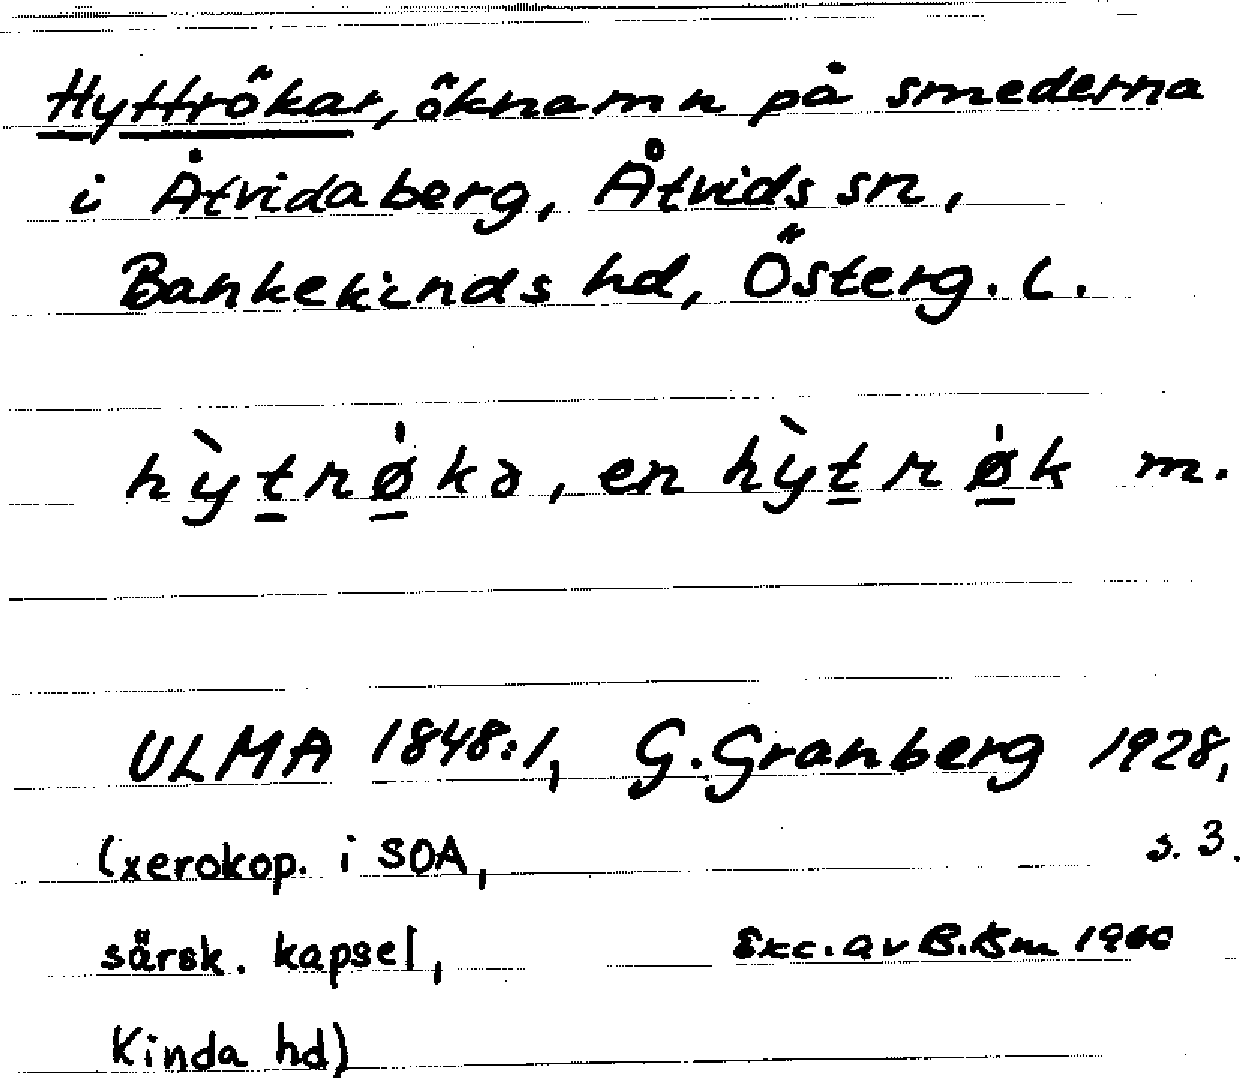 Hyttrökar, öknamn på smederna
i Åtvidaberg, Åtvids sn,
Bankekinds hd, Österg. l.
hỳt̲rø̲̍kə, en hỳt̲rø̲̍k m.
ULMA 1848:1, G. Granberg 1928,
s. 3.
(xerokop. i SOA,
särsk. kapsel,
Kinda hd)
Exc. av B.Bm 1960